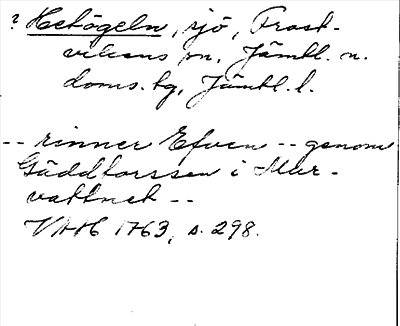 ? Hetögeln, sjö, Frost-
vikens sn, Jämtl. n.
doms. tg, Jämtl. l.
-- rinner Efven -- genom
Gäddforssen i Mur-
vattnet --
VAH 1763, s. 298.